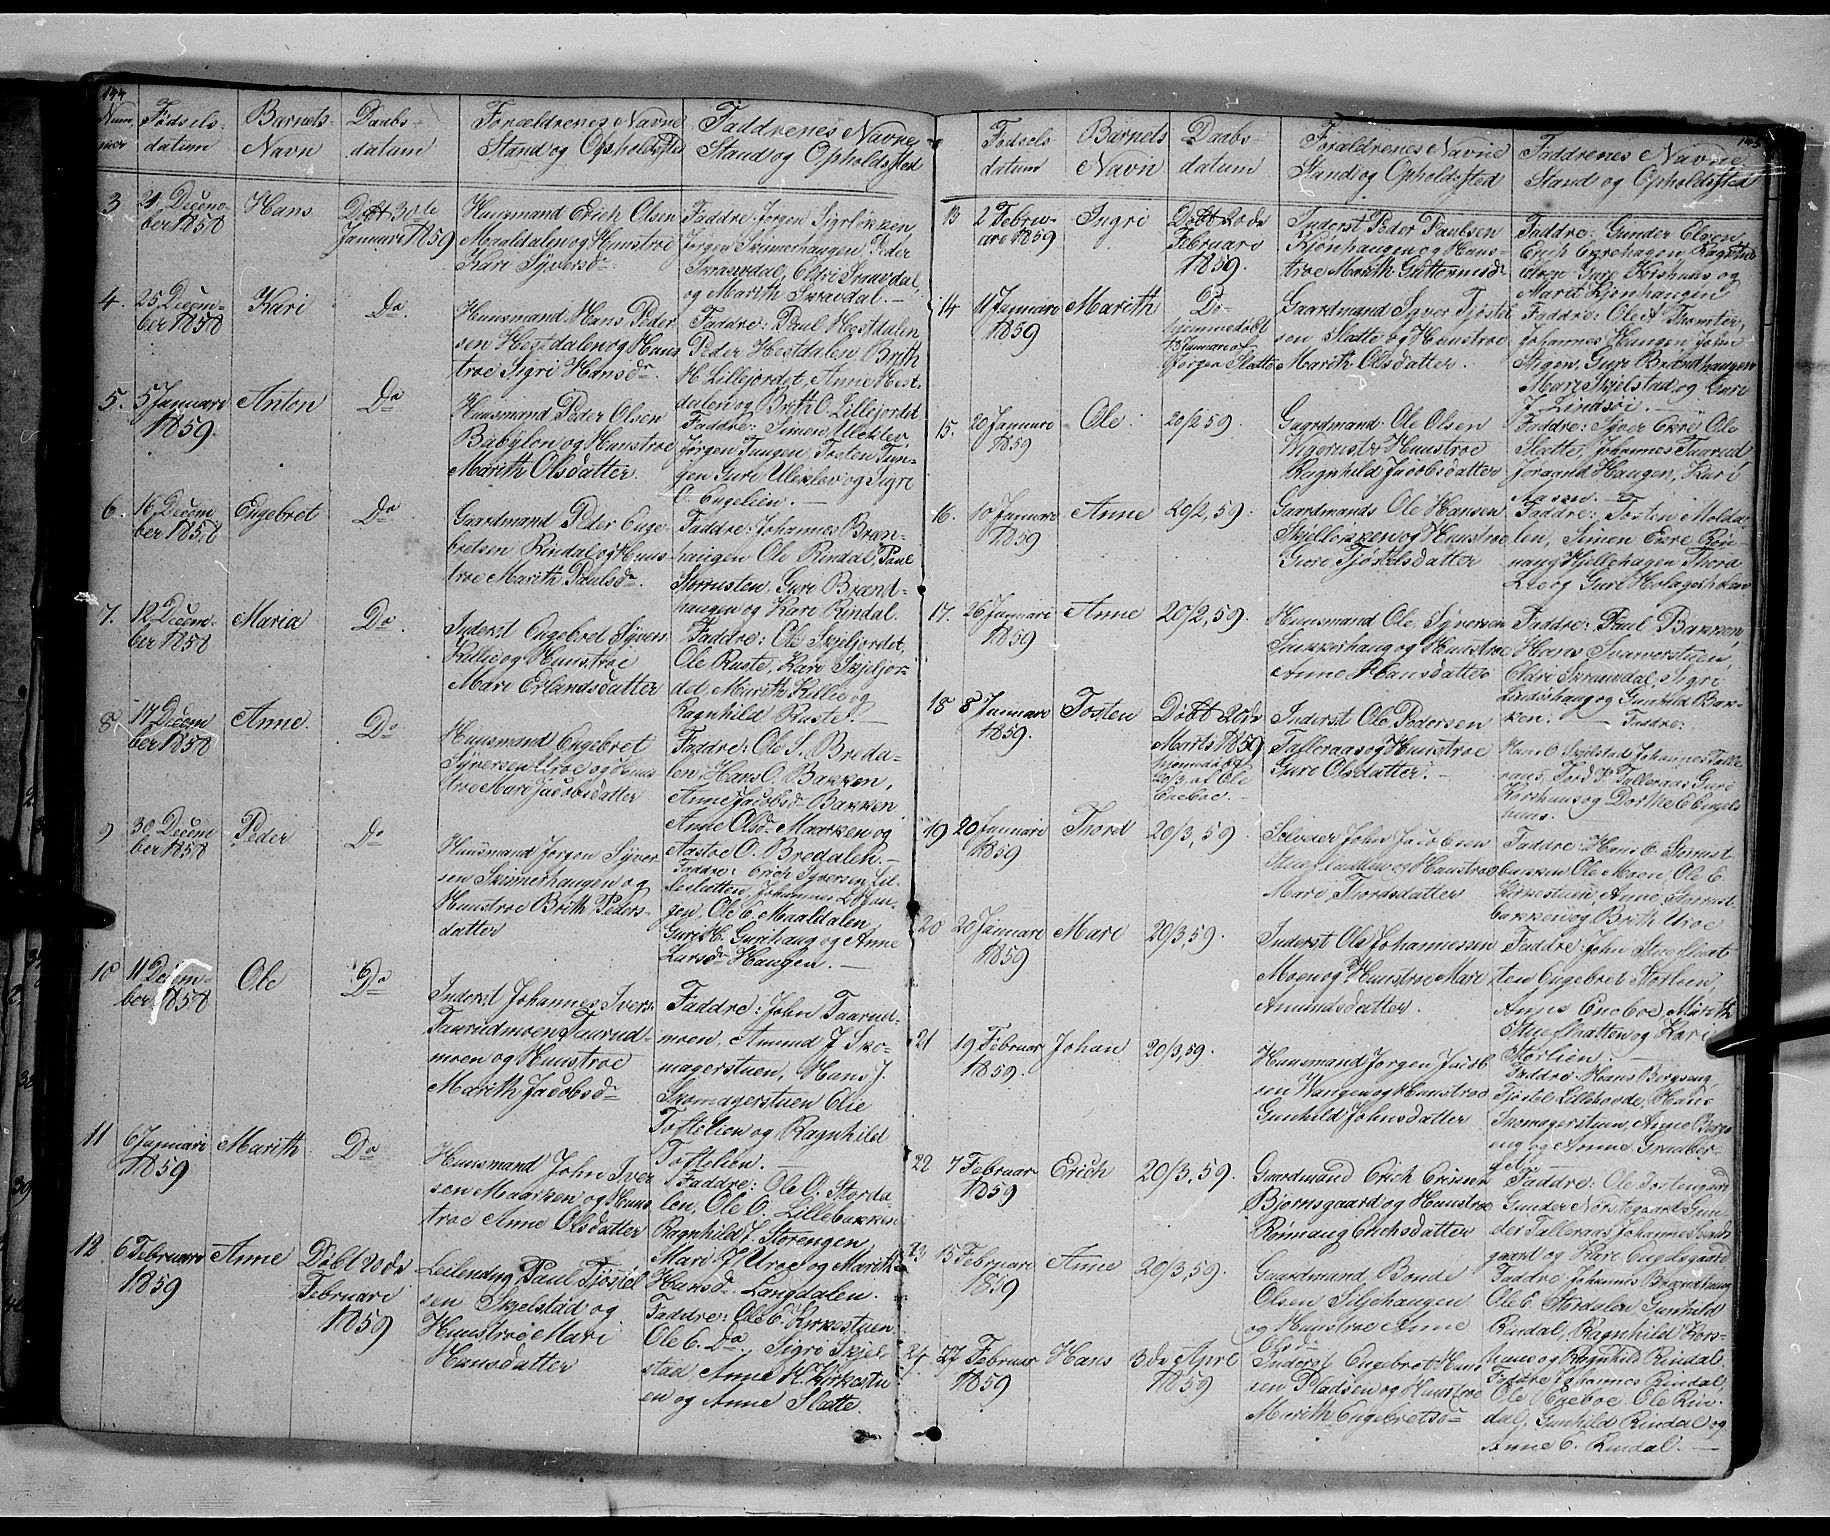 144
Num
mer
Fødsels-
datum
Barnets
Navn
Daabs-
datum
Forældrenes Navne
Stand og Opholdssted
Faddrenes Navne
Stand og Opholdssted
3
21 Decem-
ber 1858
Hans
Døbt 30te
Januari 1859
Huusmand Erich Olsen
Maaldalen og Huustroe
Kari Syversdr
Faddre: Jørgen Sigrløkken
Jørgen Skimerhaugen, Peder
Skravdal, Eldri Skravdal,
og Marith Skravdal. —
4.
25 Decem-
ber 1858
Kari
Do.
Huusmand Hans Peder
sen Hestdalen og Huus
troe Sigri Hansdr.
Faddre: Paul Hestdalen,
Peder Hestdalen, Brith
H. Lillejordet, Anne Hest-
dalen og Brith O. Lillejordet.
5.
5 Januari
1859.
Anton
Do
Huusmand Peder Olsen
Babylon og Huustroe
Marith Olsdatter.
Faddre: Simen Uleklev
Jørgen Tungen, Tosten Tun-
gen Guri Uleklev og Sigri
O. Engelien. —
6.
16 Decem
ber 1858
Engebret
Do
Gaardmand Peder Enge-
bretsen Rindal og Huus
troe Marith Paulsdr.
Faddre: Johannes Bran-
haugen Ole Rindal, Paul
Storrusten, Guri Brænd-
haugen og Kari Rindal.
7.
12 Decem-
ber 1858
Maria
Do.
Inderst Engebret Syver-
Killie og Huustroe
Mari Erlandsdatter
Faddre: Ole Skjelfjordet,
Ole Ruste, Kari Skjelfjor-
det, Marith Killie og
Ragnhild Ruste. —
8
17 Decem
ber 1858
Anne
Do
Huusmand Engebret
Syversen Uroe og Huus
troe Mari Jacobsdatter
Faddre: Ole S. Breda-
len, Hans O. Bakken,
Anne Jacobsdr Bakken
Anne Olsdr Maarken og
Aastoe O. Bredalen. —
9
30 Decem
ber 1858
Peder
Do
Huusmand Jørgen Syver
sen Skimerhaugen og
Huustroe Brith Peders-
datter
Faddre: Erich Syversen Lil-
leslætten, Johannes L. Hau-
gen, Ole E. Maaldalen
Guri H. Gurihaug og Anne
Larsdr Haugen. —
10
11 Decem-
ber 1858
Ole
Do
Inderst Johannes Ivers-
Taarudmoen Taarud-
moen og Huustroe
Marith Jacobsdr
Faddre: John Taarud-
moen, Amund J. Sko-
magerstuen, Hans J.
Skomagerstuen Olie
Toftelien og Ragnhild
Toftelien. —
11
6 Januari
1859
Marith
Do
Huusmand John Iver
sen Maarken og Huus
troe Anne Olsdatter
Faddre: Ole O. Storda
len, Ole O. Lillebakken
Ragnhild J. Storengen,
Mari J. Uroe og Marith
Hansdr. Langdalen.
12
6 Februari
1859
Anne
Døbt 20de
Februari
1859
Leilending Paul Tjøstel
sen Skjelstad og
Huustroe Mari
Hansdatter
Faddre: Ole E. Kirkestuen
Ole E. Do., Sigri Skjel
stad, Anne K. Kirkestu
en og Anne Slette.
145
Fødsels
datum
Barnets
Navn
Daabs-
datum
Forældrenes Navne
Stand og Opholdssted
Faddrenes Navne
Stand og Opholdssted
13
2 Febru-
ari 1859
Ingri
Døbt 20de
Februari
1859.
Inderst Peder Paulsen
Kjønhaugen og Huus-
troe Marith Guttormsdr
Faddre: Gunder Elven
Erich Ekrehagen, Ragnhild
Elven Guri Korshuus og
Marit Kjønhaugen
14
11 Januari
1859
Marith
Do
hjemmedøbt
13 Januari af
Jørgen Slatte
Gaardmand Syver Tjøstel
sen Slatte og Huustroe
Marith Olsdatter.
Faddre: Ole A Thomter,
Johannes Haugen, John
Stigen, Guri Brændhaugen
Mari Skjelstad og Guri
J. Lindsøi. —
15.
20 Januari
1859
Ole
20/2 59
Gaardmand Ole Olsen
Wigerust & Huustroe
Ragnhild Jacobsdatter
Faddre: Syver Ekre Ole
Slatte, Johannes Taarud
Joraand Haugen, Kari
Aasen. —
16.
10 Januari
1859
Anne
20/2, 59.
Gaardmands Ole Hansen
Skjelløkken og Huustroe
Guri Tjøstelsdatter
Faddre: Tosten Molda-
len, Simen Ekre Røn-
naug Hjellehagen Thora
Lie og Guri Holagshaken
17.
26 Januari
1859
Anne
20/2, 59.
Huusmand Ole Syversen
Snekkerhaug og Huustroe
Anne Hansdatter
Faddre: Paul Bakken,
Hans Svarverstuen,
Eldri Skravdal, Sigri
Lindsøhaug og Gunhild Bak-
ken. —
18
8 Januari
1859.
Tosten
Døbt 20de
Marts 1859
hjemmedøbt
20/3 af Ole
Eneboe. —
Inderst Ole Pedersen
Talleraas og Huustroe
Guri Olsdatter. —
Faddre:
Hans O. Skjelstad Johannes Talle
raas, Tord P. Talleraas Guri
Korshuus og Dorthe E Engels-
huus.
19
20 Januari
1859
Thord
20/3, 59.
Selveier John Jacobsen
Stuefladten og Huustroe
Mari Thordsdatter
Faddre: Hans O. Storrust-
bakken Ole Moen, Ole E.
Kirkestuen, Anne Storrust-
bakken og Brith Uroe
20
20 Januari
1859
Mari
20/3, 59.
Inderst Ole Johannessen
Moen og Huustroe Mari
Amundsdatter
Faddre: John Stueflaat-
ten Engebret Storlien,
Anne Eneboe Marith
Stueflaatten og Kari
Storlien.
21
19 Februar
1859.
Johan
20/3, 59.
Huusmand Jørgen Jacob
sen Wangen og Huustroe
Gunhild Johnsdatter
Faddre: Hans Bergseng,
Tjødel Lillehovde, Hans
Skomagerstuen, Anne Berg
eng og Anne Graaber-
get. —
22
7 Februar
1859
Erich
20/3, 59.
Gaardmand Erich Ericsen
Bjørnsgaard og Huustroe
Rønnaug Erichsdatter
Faddre: Ole Toftengaard
Gunder Norstegaard, Gun-
der Talleraas Johannes
gaard og Kari Engelsgaard
23
15 Februari
1859
Anne
20/3, 59.
Gaardmand Bonde
Olsen Siljehaugen
og Huustroe Anne
Olsdr
Faddre Johannes Brændhaug
Ole E. Stordalen Gunhild
Rindal, Ragnhild Kors-
huus og Ragnhild Rindal.
24
27 Februar
1859
Hans
3de April
1859
Inderst Engebret Hans
sen Pladsen og Huustroe
Marith Engebretsdr
Faddre Johannes Rindal,
Ole Eneboe, Ole Rin-
dal, Gunhild Rindal og
Anne E. Rindal. —